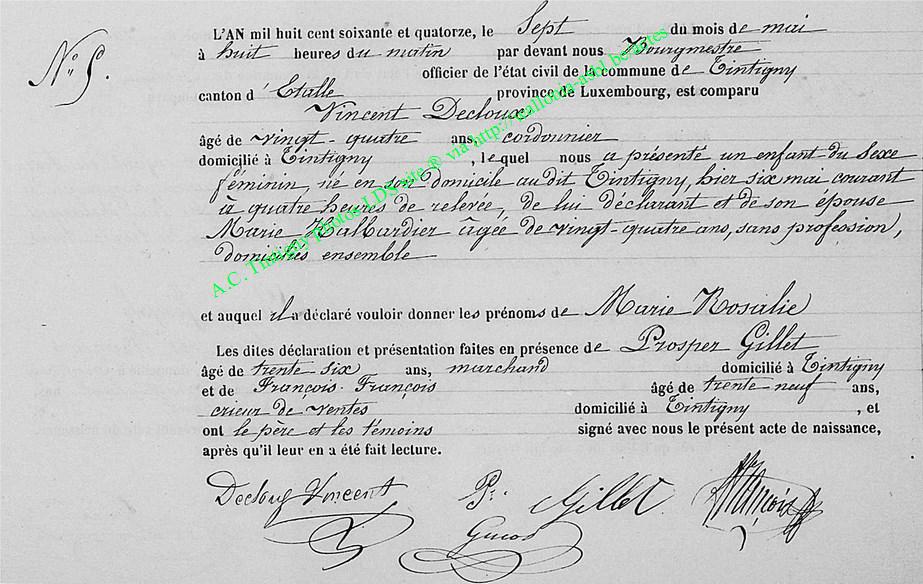 N° 5.
L'AN mil huit cent soixante et quatorze, le Sept du mois de mai
à huit heures du matin par devant nous Bourgmestre
officier de l'état civil de la commune de Tintigny
canton d'Etalle province de Luxembourg, est comparu
Vincent Decloux
âgé de vingt-quatre ans, cordonnier
domicilié à Tintigny, lequel nous a présenté un enfant du Sexe
féminin, né en son domicile audit Tintigny, hier six mai courant
à quatre heures de relevée, de lui déclarant et de son épouse
Marie Halbardier âgée de vingt-quatre ans, sans profession,
domiciliés ensemble
et auquel il a déclaré vouloir donner les prénoms de Marie Rosalie
Les dites déclaration et présentation faites en présence de Prosper Gillet
âgé de trente six ans, marchand domicilié à Tintigny
et de François François âgé de trente neuf ans,
crieur de ventes domicilié à Tintigny, et
ont le père et les témoins signé avec nous le présent acte de naissance,
après qu'il leur en a été fait lecture.
Decloux Vincent Pr. Gillet François
A.C. Tintigny photos LDS site ® via http://gallonia-asbl.be/actes